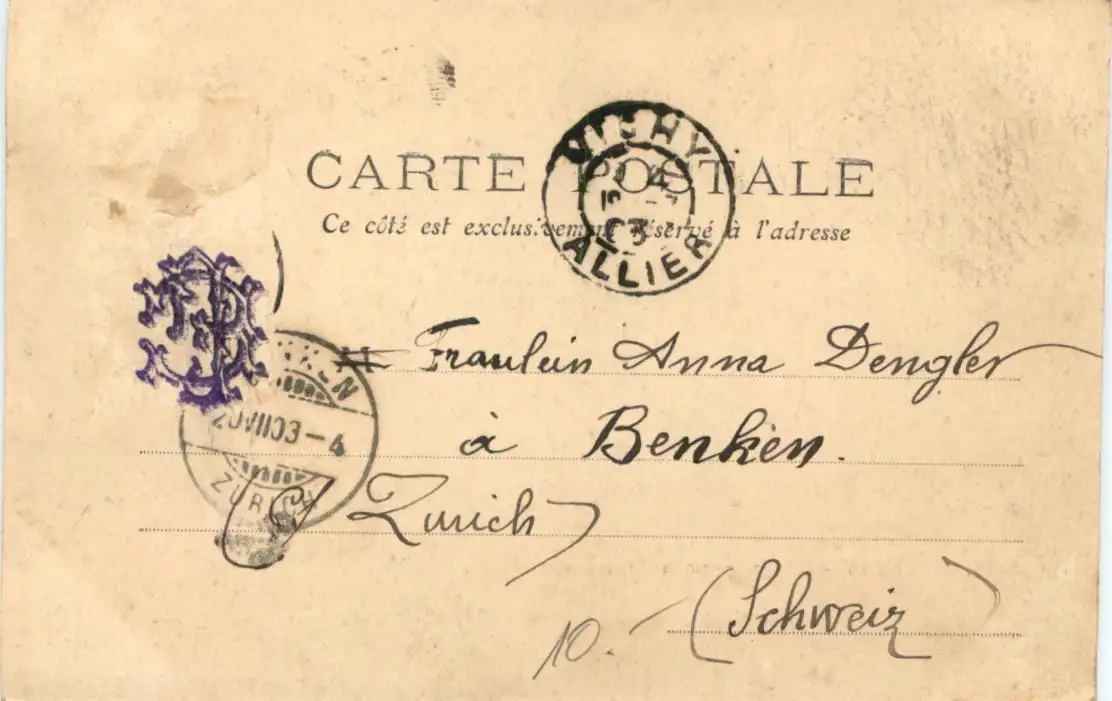 CARTE POSTALE
Ce côté est exclusivement réservé à l'adresse
VICHY
ALLIER
Fraulein Anna Dengler
à Benken.
Zurich
(Schweiz)
10.
20 VII 03 - 4
ZÜRICH